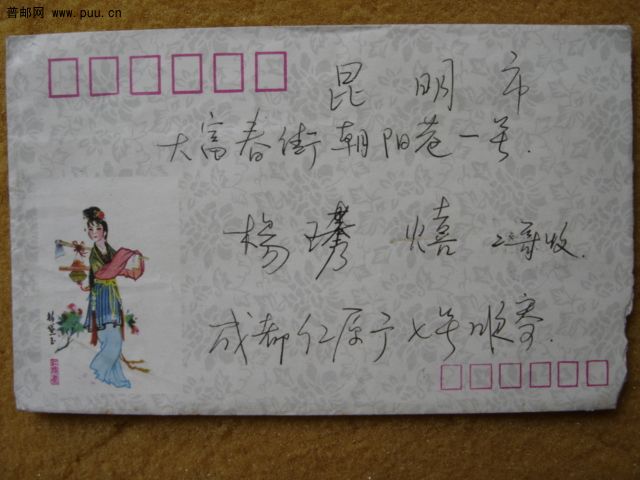 普邮网 www.puu.cn
昆明市
大富春街朝阳巷一号.
杨 二哥收.
成都仁厚 七号 寄.
林黛玉